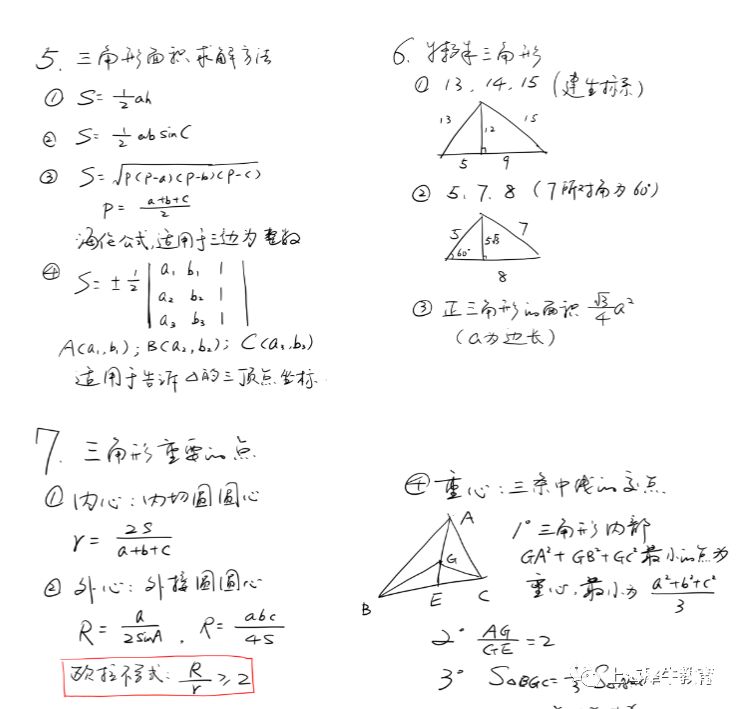 5. 三角形面积求解方法
① S=½ah
② S=½absinC
③ S=√P(P-a)(P-b)(P-c)
P=(a+b+c)/2
海伦公式,适用于三边为整数
④ S=±½ |a₁ b₁ 1|
|a₂ b₂ 1|
|a₃ b₃ 1|
A(a₁,b₁); B(a₂,b₂); C(a₃,b₃)
适用于告诉△的三顶点坐标.
6. 特殊三角形
① 13, 14, 15 (建坐标系)
13
12
15
5
9
② 5, 7, 8 (7所对角为60°)
5
60°
7
8
③ 正三角形的面积 √3/4 a²
(a为边长)
7. 三角形重要的点
① 内心:内切圆圆心
r=2S/(a+b+c)
② 外心:外接圆圆心
R=a/2sinA, R=abc/4S
欧拉不等式: R/r ≥2
④ 重心:三条中线的交点.
A
G
B
E
C
1° 三角形内部
GA²+GB²+GC²最小的点为
重心,最小为 (a²+b²+c²)/3
2° AG/GE=2
3° S△BGC=